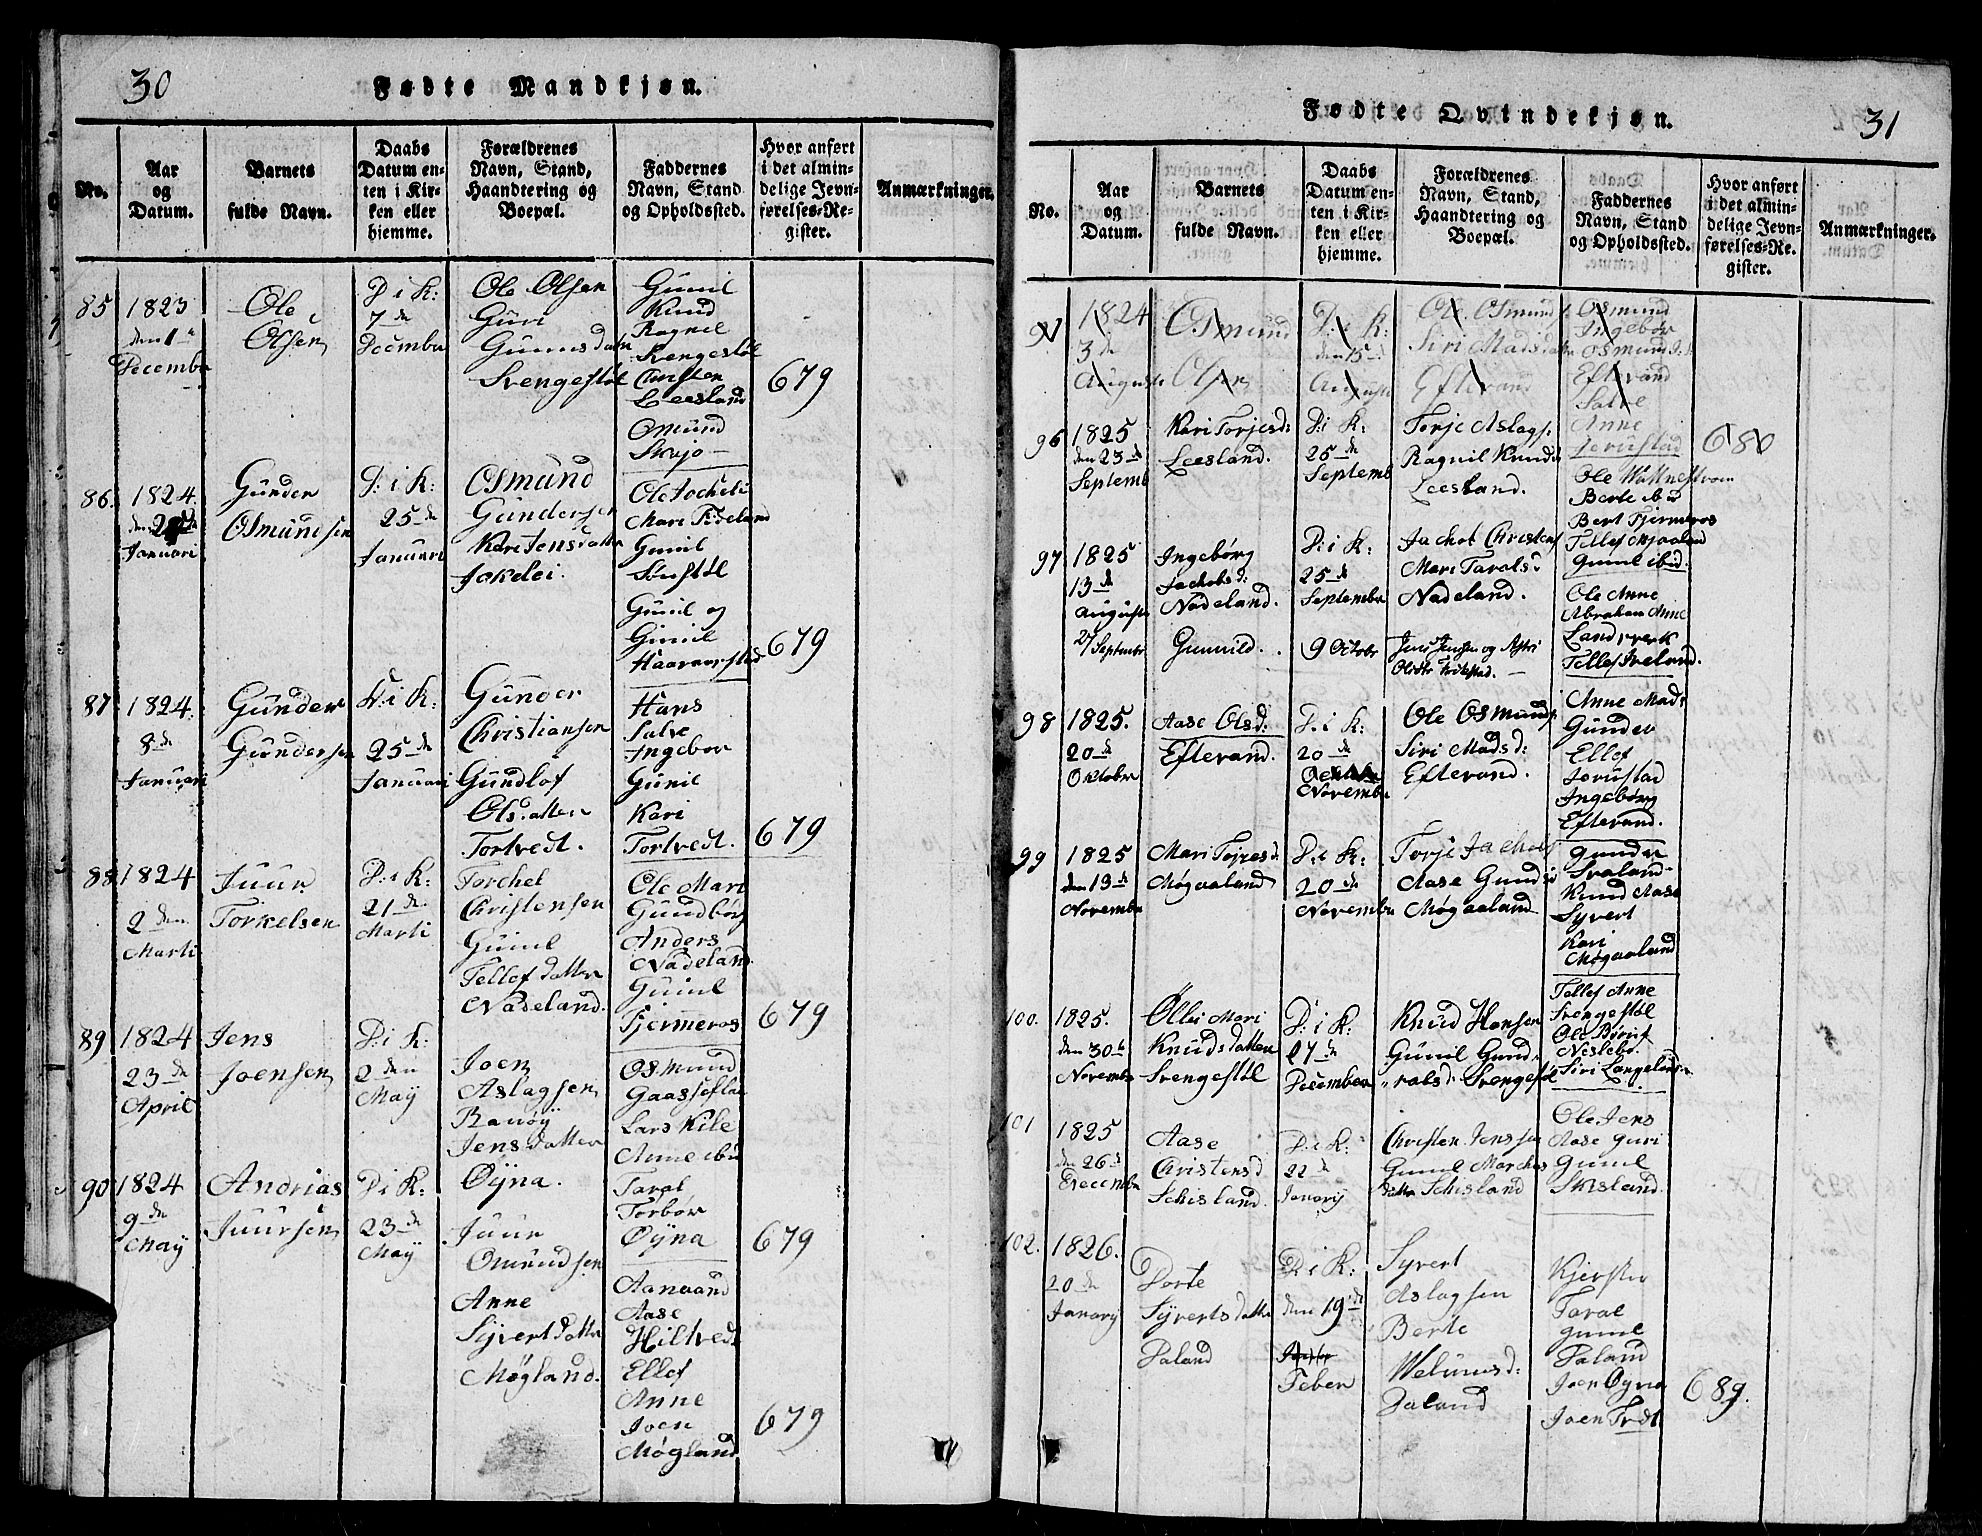 30
Fødte Mandkjøn.
No.
Aar og Datum.
Barnets fulde Navn.
Daabs Datum enten i Kirken eller hjemme.
Forældrenes Navn, Stand, Haandtering og Boepæl.
Faddernes Navn, Stand og Opholdssted.
Hvor anført i det almindelige Jevnførelses-Register.
Anmærkninger.
85
1823
den 1te
Decembr
Ole
Olsen
D: i K:
7de
Decembr
Ole Olsen
Guri
Gunnsdatr
Svengestøl
Gunil
Knud
Ragnil
Svengestøl
Christen
Leesland
Omund
Skejo
679
86.
1824.
Januari
Gunder
Osmundsen
D: i K:
25de
Januari
Osmund
Gundersen
Kari Jensdatter
Jokelei.
Ole Jocheli
Mari Tideland
Gunil
Sønstøl
Gunil og
Gunil
Haaverstad
679
87
1824.
8de
Januari
Gunder
Gundersen
D: i K:
25de
Januari
Gunder
Christiansen
Gundlof
Olsdatter
Tortvedt.
Hans
Salve
Ingebor
Gunil
Kari
Tortvedt.
679
88
1824
2den
Marti
Juur
Torkelsen
D: i K:
21de
Marti
Torchel
Christensen
Gunil
Tellefdatter
Nadeland.
Ole Mari
Gundbør
Anders
Nadeland
Gunil
Fjermeros
679
89
1824
23de
April
Jens
Joensen
D: i K:
2den
Maÿ
Joen
Aslagsen
Ranøÿ
Jensdatter
Øÿna.
Osmund
Gaasseflaa
Lars Kile
Anne ibid
Taral
Torbør
Øÿna
679
90
1824
9de
Maÿ
Andrias
Juursen
D: i K:
23de
Maÿ
Juur
Omundsen
Anne
Sÿvertdatter
Møgland.
Aanaund
Aase
Hiltvedt
Ellef
Anne
Joen
Møgland
679
31
Fødte Qvindekjøn.
No.
Aar og Datum.
Barnets fulde Navn.
Daabs Datum enten i Kirken eller hjemme.
Forældrenes Navn, Stand, Haandtering og Boepæl.
Faddernes Navn, Stand og Opholdssted.
Hvor anført i det almindelige Jevnførelses-Register.
Anmærkninger.
1824
3de
Auguste
Osmund
Olsen
D: i K:
den 15de
Auguste
Ole Osmunds
Siri Madsdatter
Efterand
Osmund
Ingebør
Osmund
Efterand
Salve
Anne
Jerustad
96
1825
den 23de
Septemb
Kari Torjesd:
Leesland.
D: i K:
25de
Septemb
Torje Aslags:
Ragnil Knuds
Leesland.
Ole
Berte ibid
Bert Fjermeros
680
97
1825
13de
Auguste
Ingebørg
Jachobsd:
Nadeland.
D: i K:
25de
Septembr
Jachob Christens
Mari Taralsd
Nadeland.
Tellef Mjaaland
Gunil ibid.
Ole Anne
Abraham Anne
Landsverk
Tellef Iveland.
27 Septembr
Gunnild.
9 Octobr
Jens Jensen og Astri
98
1825.
20de
Oktobr
Aase Olsd:
Efterand.
D: i K:
20de
Novembr
Ole Osmunds
Siri Madsd:
Efterand.
Anne Mads
Gunder
Ellef
Jorustad
Ingebørg
Efterand.
99
1825
den 13de
Novembr
Mari Tojresd
Møgaaland
D: i K:
20de
Novembr
Torje Jachobs
Aase Gunds
Møgaaland
Gunder
Svaland
Knud Aase
Syvert
Kari
Møgaaland
100.
1825.
den 30te
Novembr
Ølle Mari
Knudsdatter
Svengestøl
D: i K:
27de
December
Knud Hansen
Gunil Gund-
ralsd: Svengestøl
Tellef Anne
Svengestøl
Ole Børuf
Neslebø.
Siri Langeland
101
1825
den 26de
Decembr
Aase
Christensd
Schisland.
D: i K:
22de
Janarÿ
Christen Jenssen
Gunil Marches
datter Schisland
Ole Jens
Aase Guri
Gunil
Skisland.
102.
1826.
20de
Janarÿ
Dorte
Sÿvertsdatter
Daland
D: i K:
den 19de
Feber
Sÿvert
Aslagsen
Berte
Daland
Kjersten
Taral
Gunil
Daland
Joen Øÿna
689.